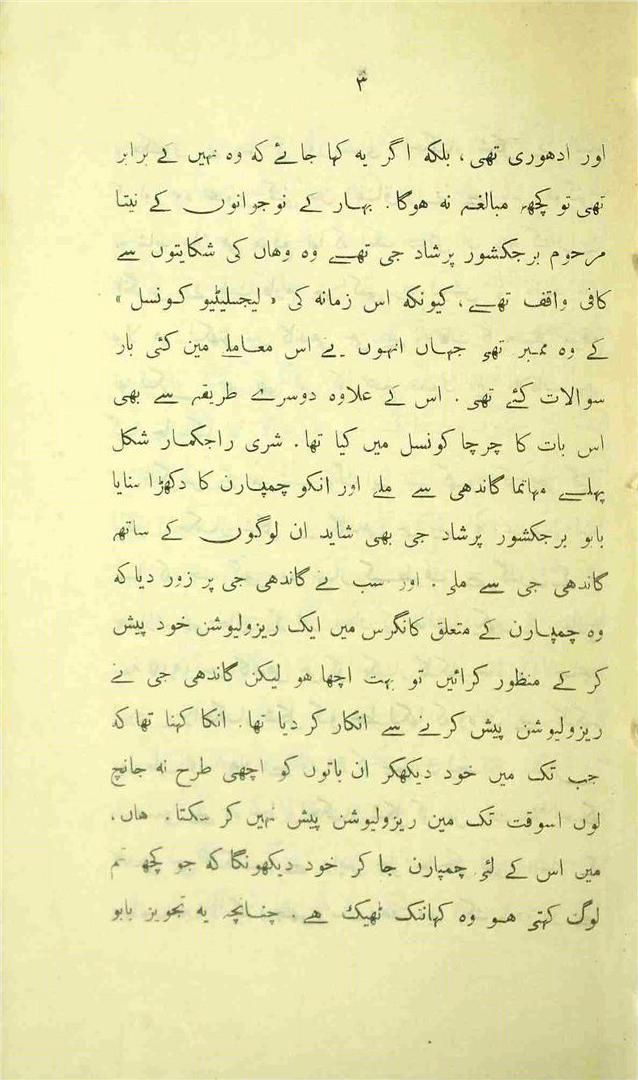 ۳
اور ادھوری تھی، بلکہ اگر یہ کہا جائے کہ وہ نہیں کے برابر
تھی تو کچھ مبالغہ نہ ہوگا۔ بہار کے نوجوانوں کے نیتا
مرحوم برجکشور پرشاد جی تھے وہ وھاں کی شکایتوں سے
کافی واقف تھے، کیونکہ اس زمانہ کی «لیجسلیٹیو کونسل»
کے وہ ممبر تھی جہاں انہوں نے اس معاملے مین کئی بار
سوالات کئے تھی۔ اس کے علاوہ دوسرے طریقہ سے بھی
اس بات کا چرچا کونسل میں کیا تھا۔ شری راجکمار شکل
پہلے مہاتما گاندھی سے ملے اور انکو چمپارن کا دکھڑا سنایا
بابو برجکشور پرشاد جی بھی شاید ان لوگوں کے ساتھ
گاندھی جی سے ملی۔ اور سب نے گاندھی جی پر زور دیا کہ
وہ چمپارن کے متعلق کانگرس میں ایک ریزولیوشن خود پیش
کر کے منظور کرائیں تو بہت اچھا ھو لیکن گاندھی جی نے
ریزولیوشن پیش کرنے سے انکار کر دیا تھا۔ انکا کہنا تھا کہ
جب تک میں خود دیکھکر ان باتوں کو اچھی طرح نہ جانچ
لوں اسوقت تک مین ریزولیوشن پیش نہیں کر سکتا۔ ھاں،
میں اس کے لئی چمپارن جا کر خود دیکھونگا کہ جو کچھ تم
لوگ کہتی ھو وہ کہانتک ٹھیک ھے۔ چنانچہ یہ تجویز بابو